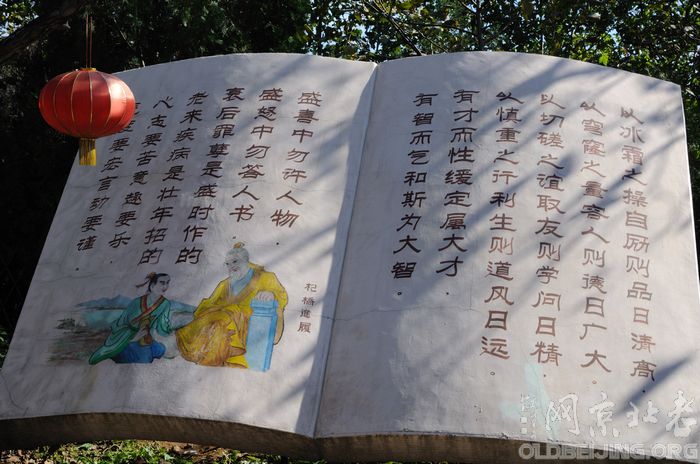 以冰霜之操自励则品日清高
以穹窿之量容人则德日广大
以切磋之谊取友则学问日精
以慎重之行利生则道风日远
有才而性缓定属大才
有智而气和斯为大智。
盛喜中勿许人物
盛怒中勿答人书
衰后罪孽是盛时作的
老来疾病是壮年招的
心志要苦意趣要乐
要宏言动要谨
杞橋進履
网京北老
OLDBEIJING.ORG